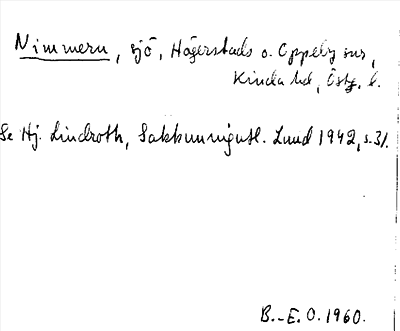 Nimmern, sjö, Hägerstads o. Oppeby snr,
Kinda hd, Östg. l.
Se Hj. Lindroth, Lund 1942, s. 31.
B.-E. O. 1960.